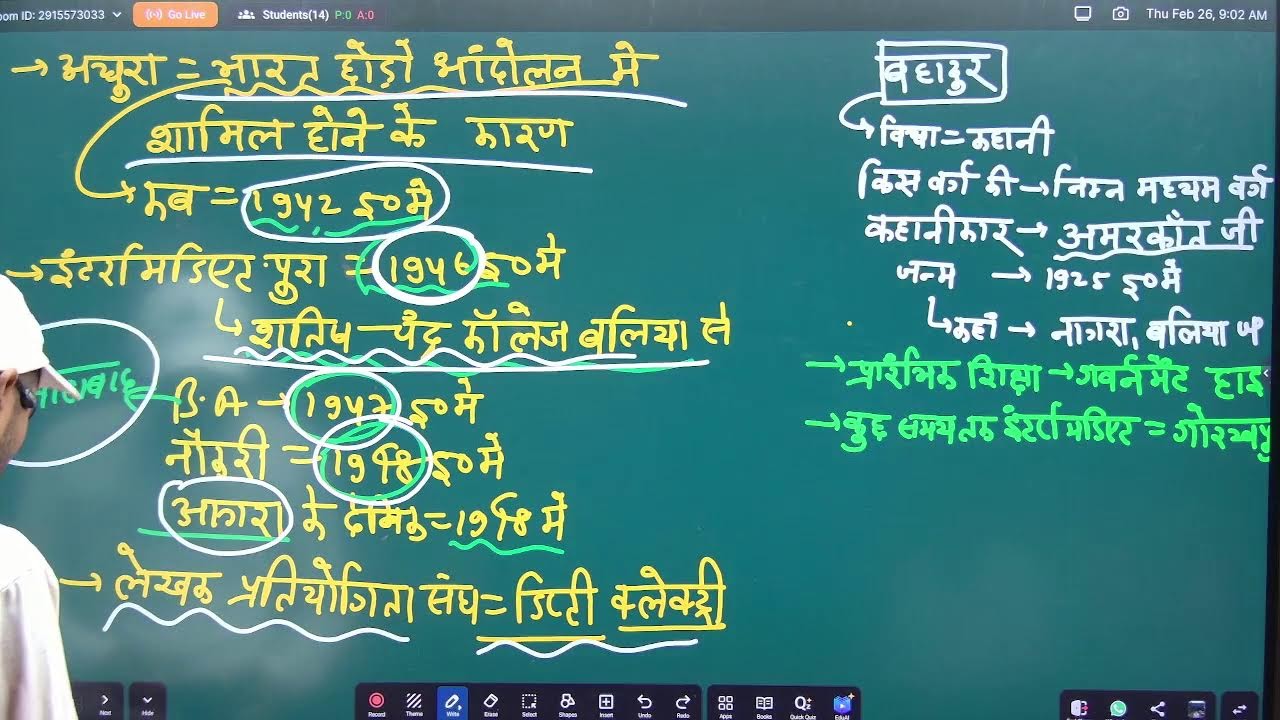 oom ID: 2915573033 Go Live Students(14) P:0 A:0 Thu Feb 26, 9:02 AM
→ अधूरा = भारत छोडो आंदोलन में
शामिल होने के कारण
कब = 1942 ई० में
→ इंटरमिडिएट पुरा = 1946 ई० में
शतिष चंद्र कॉलेज बलिया से
B.A → 1947 ई० में
नौकरी = 1948 ई० में
के दैनिक = 1948 में
→ लेखक प्रतियोगिता संघ = डिप्टी क्लेक्ट्री
बहादुर
→ विधा = कहानी
किस वर्ग की → निम्न मध्यम वर्ग
कहानीकार → अमरकाँत जी
जन्म → 1925 ई० में
कहाँ → नागरा, बलिया
→ प्रारंभिक शिक्षा → गवर्नमेंट हाइ
→ कुछ समय तक इंटरमिडिएट = गोरखपु
Next Hide Record Theme Write Erase Select Shapes Insert Undo Redo Apps Books Quick Quiz EduAI